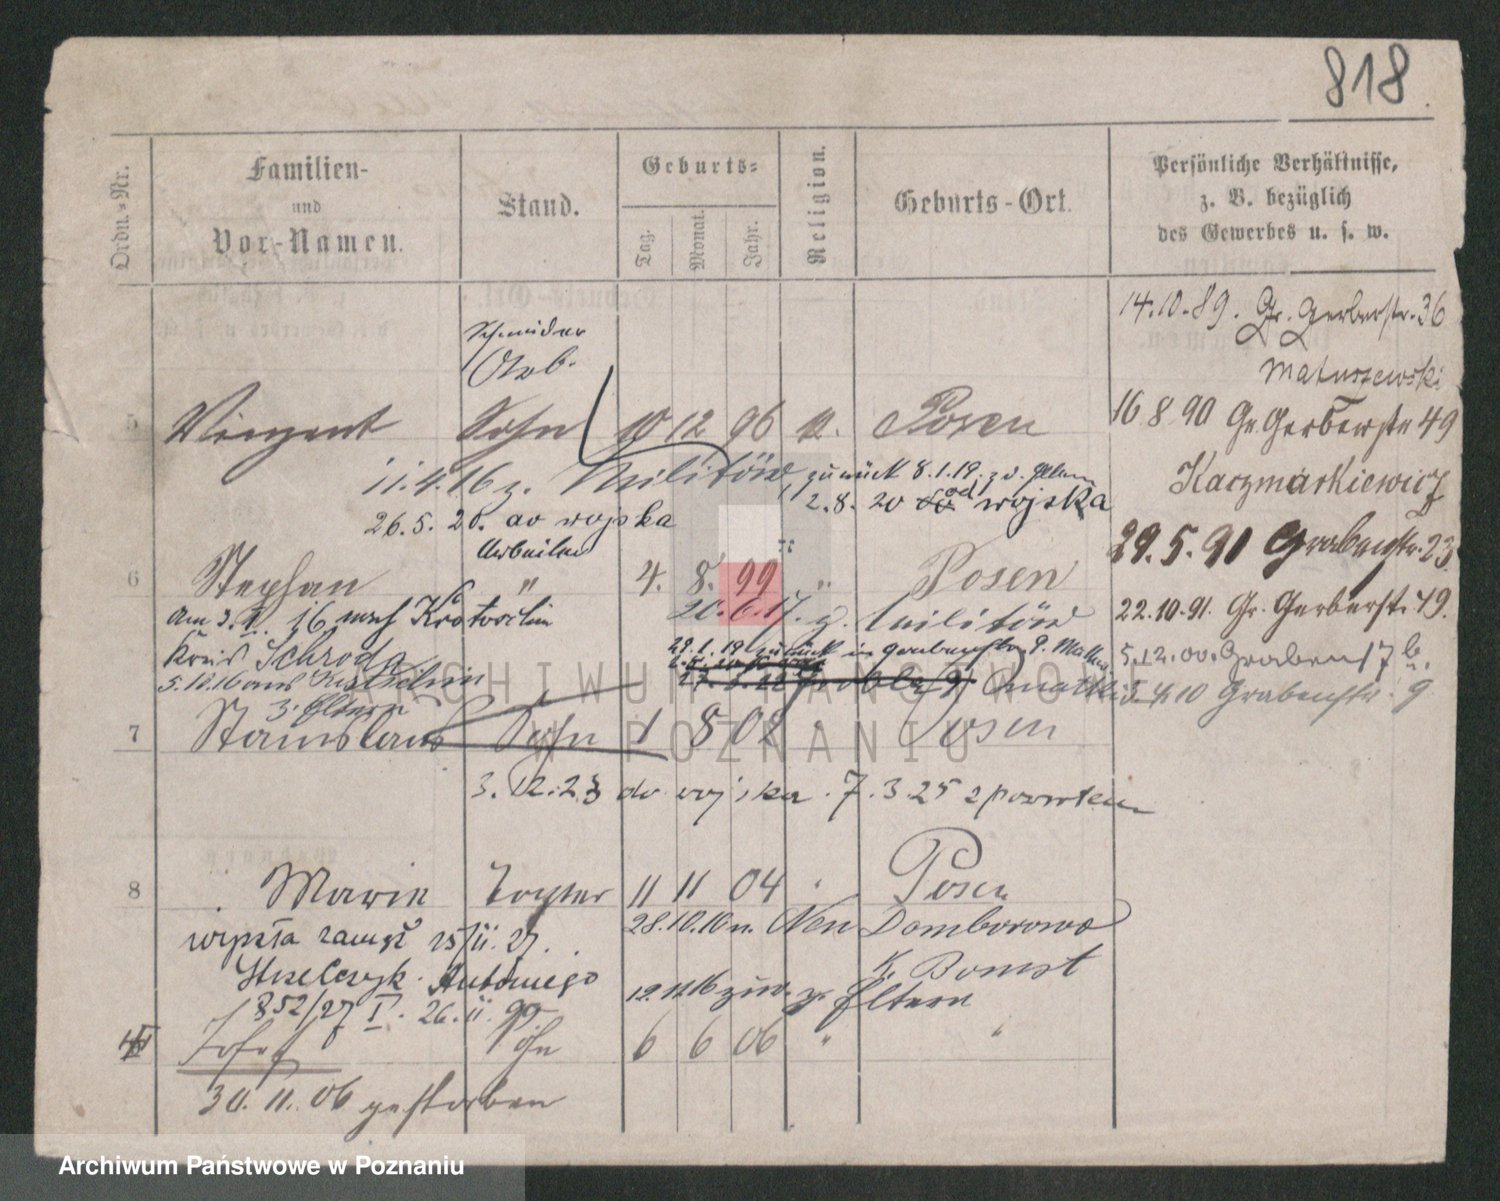 818
Ordn.-Nr.
Familien-
und
Vor-Namen.
Stand.
Geburts-
Tag.
Monat.
Jahr.
Religion.
Geburts-Ort.
Persönliche Verhältnisse,
z. B. bezüglich
des Gewerbes u. s. w.
14.10.89. Gr. Gerberstr. 36
Matuszewski
16 8 90 Gr. Gerberstr 49
Kaczmarkiewicz
29.5.91 Grabenstr. 23
22.10.91. Gr. Gerberstr. 49.
5.12.00. Graben 17 b.
Grabenstr. 9
Schneider
Arb.
5 Vinzent Sohn 10 12 96 K. Posen
11.4.16 z. Militär, zurück 8.1.19. z. d. Eltern
2.8.20 od wojska
26.5.20. do wojska
Arbeiter
6 Stephan " 4. 8. 99 " Posen
Am 3. 16 nach Krotoschin
20.6.17. z. Militär
Kreis Schroda
29.1.19 zurück in Grabenstr 9.
5.10.16 aus
z. Eltern
7 Stanislaus Sohn 1 8 02 Posen
3.12.23 do wojska. 7.3.25 z powrotem
8 Marie Tochter 11 11 04 " Posen
28.10.16 n. Neu Dombrowo
wyszła zamąż 15/II. 27.
K. Bomst
Strzelczyk Antoniego
12.11.16 zur. z. Eltern
852/27 I. 26.II. 99.
Josef Sohn 6 6 06 " "
30.11.06 gestorben
ARCHIWUM PAŃSTWOWE
W POZNANIU
Archiwum Państwowe w Poznaniu